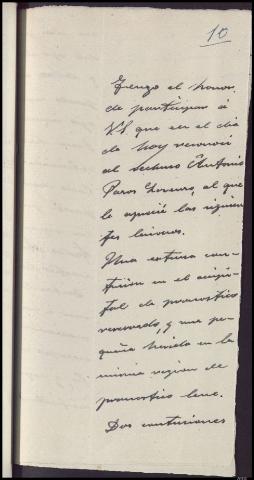 10
Tengo el honor
de participar á
VS que en el dia
de hoy reconocí
al vecino Antonio
Paros Lorenzo, al que
le aprecié las siguien
tes lesiones.
Una extensa con-
tusión en el occipi-
tal de pronostico
reservado, y una pe-
queña herida en la
misma region de
pronostico leve.
Dos contusiones